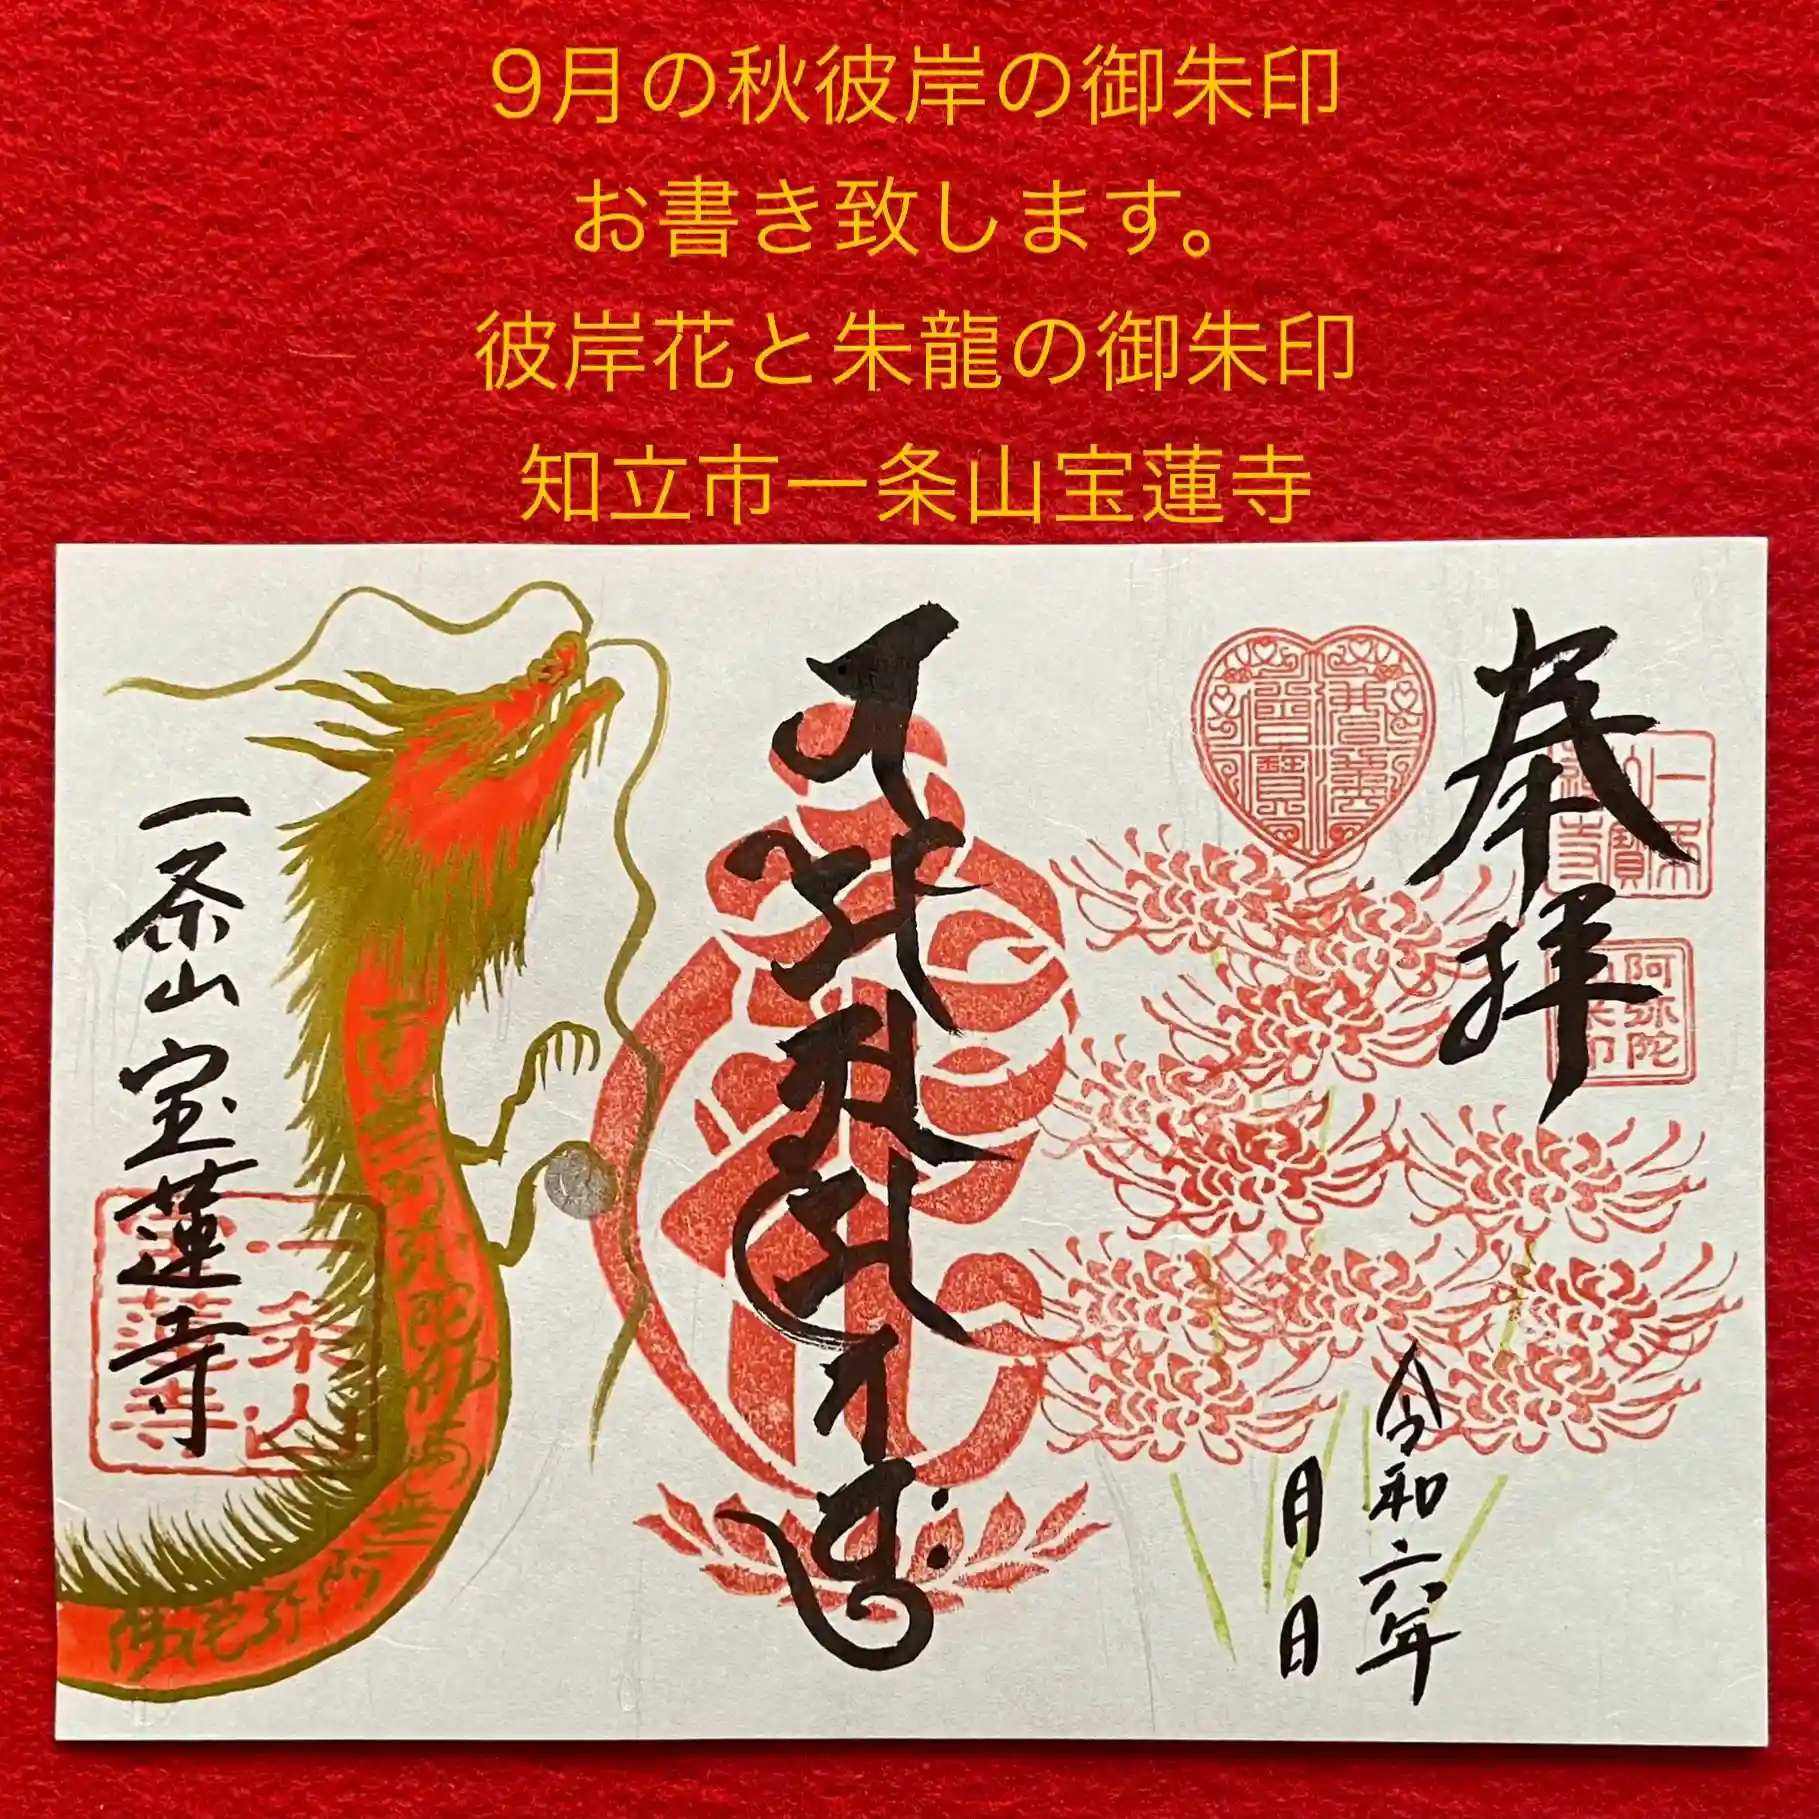 9月の秋彼岸の御朱印
お書き致します。
彼岸花と朱龍の御朱印
知立市一条山宝蓮寺
奉拝
一条山
宝蓮寺
阿弥陀
令和六年
月 日
一条山宝蓮寺
一条山
南無阿弥陀仏南無阿弥陀仏